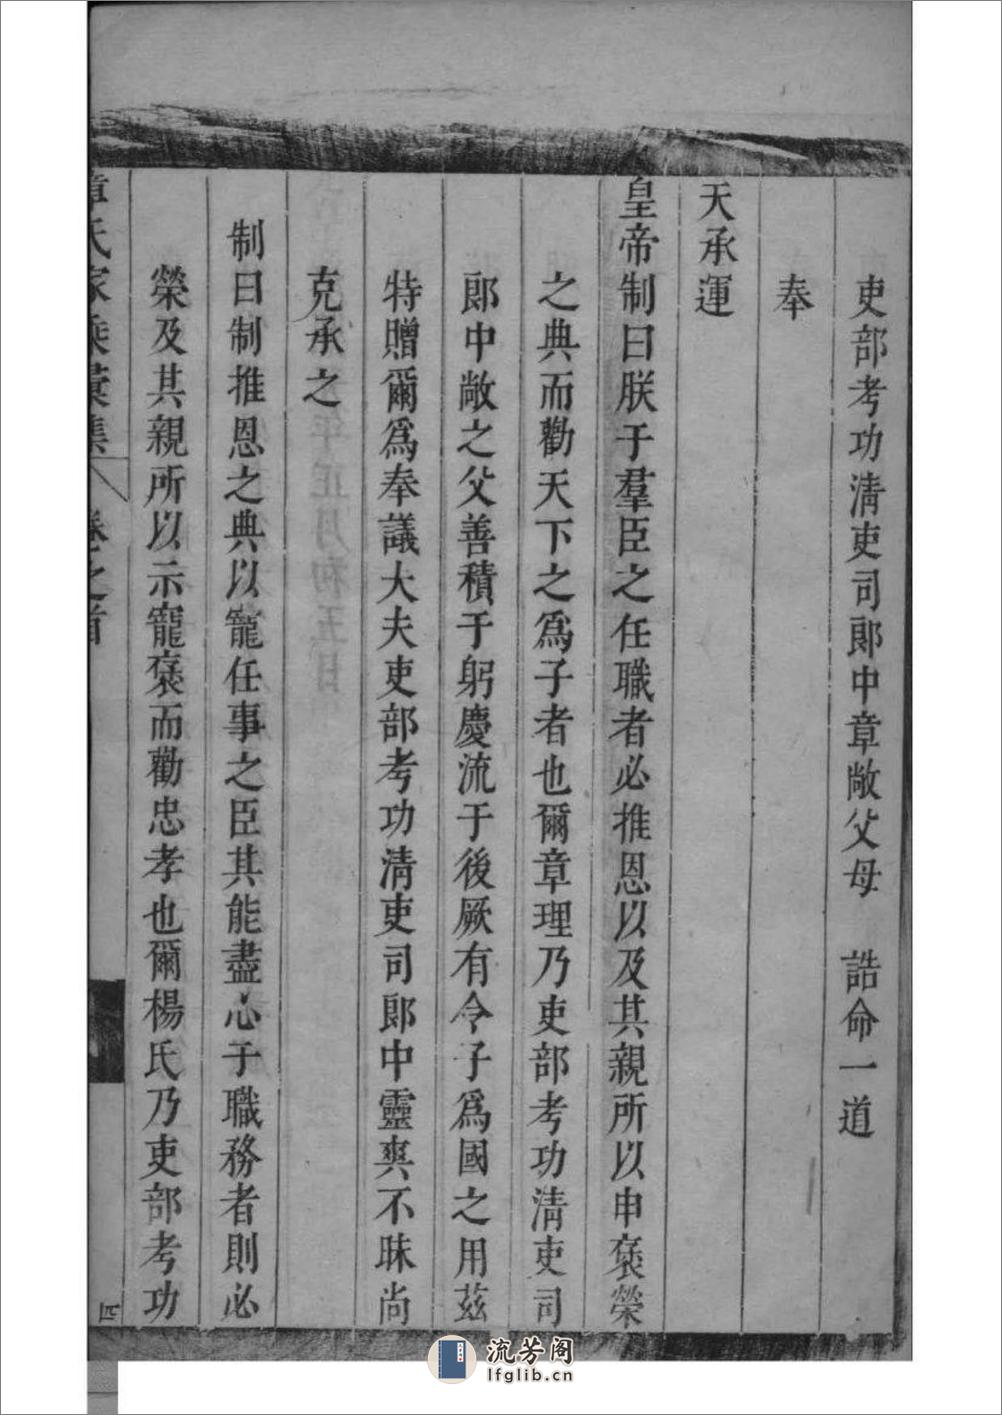 吏部考功淸吏司郞中章敞父母　誥命一道
奉
天承運
皇帝制曰朕于羣臣之任職者必推恩以及其親所以申褒榮
之典而勸天下之爲子者也爾章理乃吏部考功淸吏司
郞中敞之父善積于躬慶流于後厥有令子爲國之用茲
特贈爾爲奉議大夫吏部考功淸吏司郞中靈爽不昧尚
克承之
制曰制推恩之典以寵任事之臣其能盡心于職務者則必
榮及其親所以示寵褒而勸忠孝也爾楊氏乃吏部考功
章氏家乘彙集　卷之首　四
流芳阁
lfglib.cn